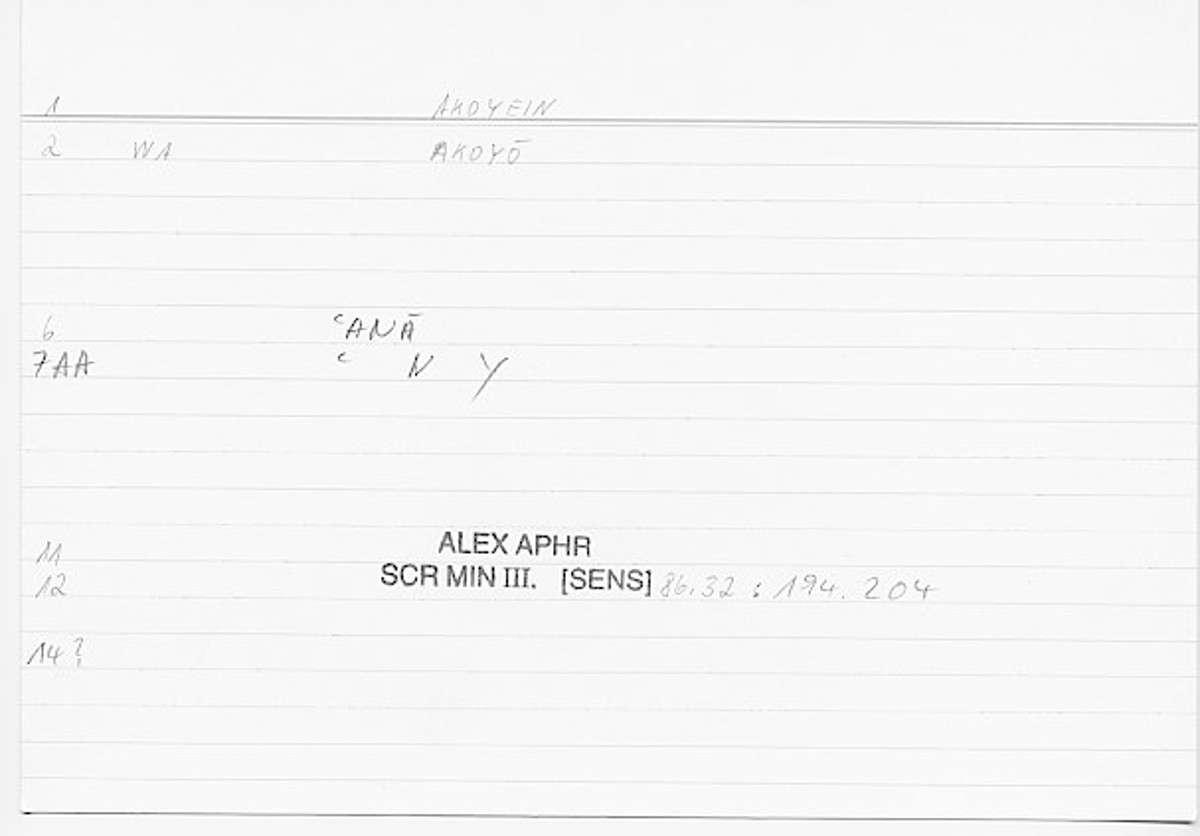 1 AKOYEIN
2 WA AKOYŌ
6 ʿANĀ
7AA ʿ N Y
11 ALEX APHR
12 SCR MIN III. [SENS] 86.32 : 194. 204
14?